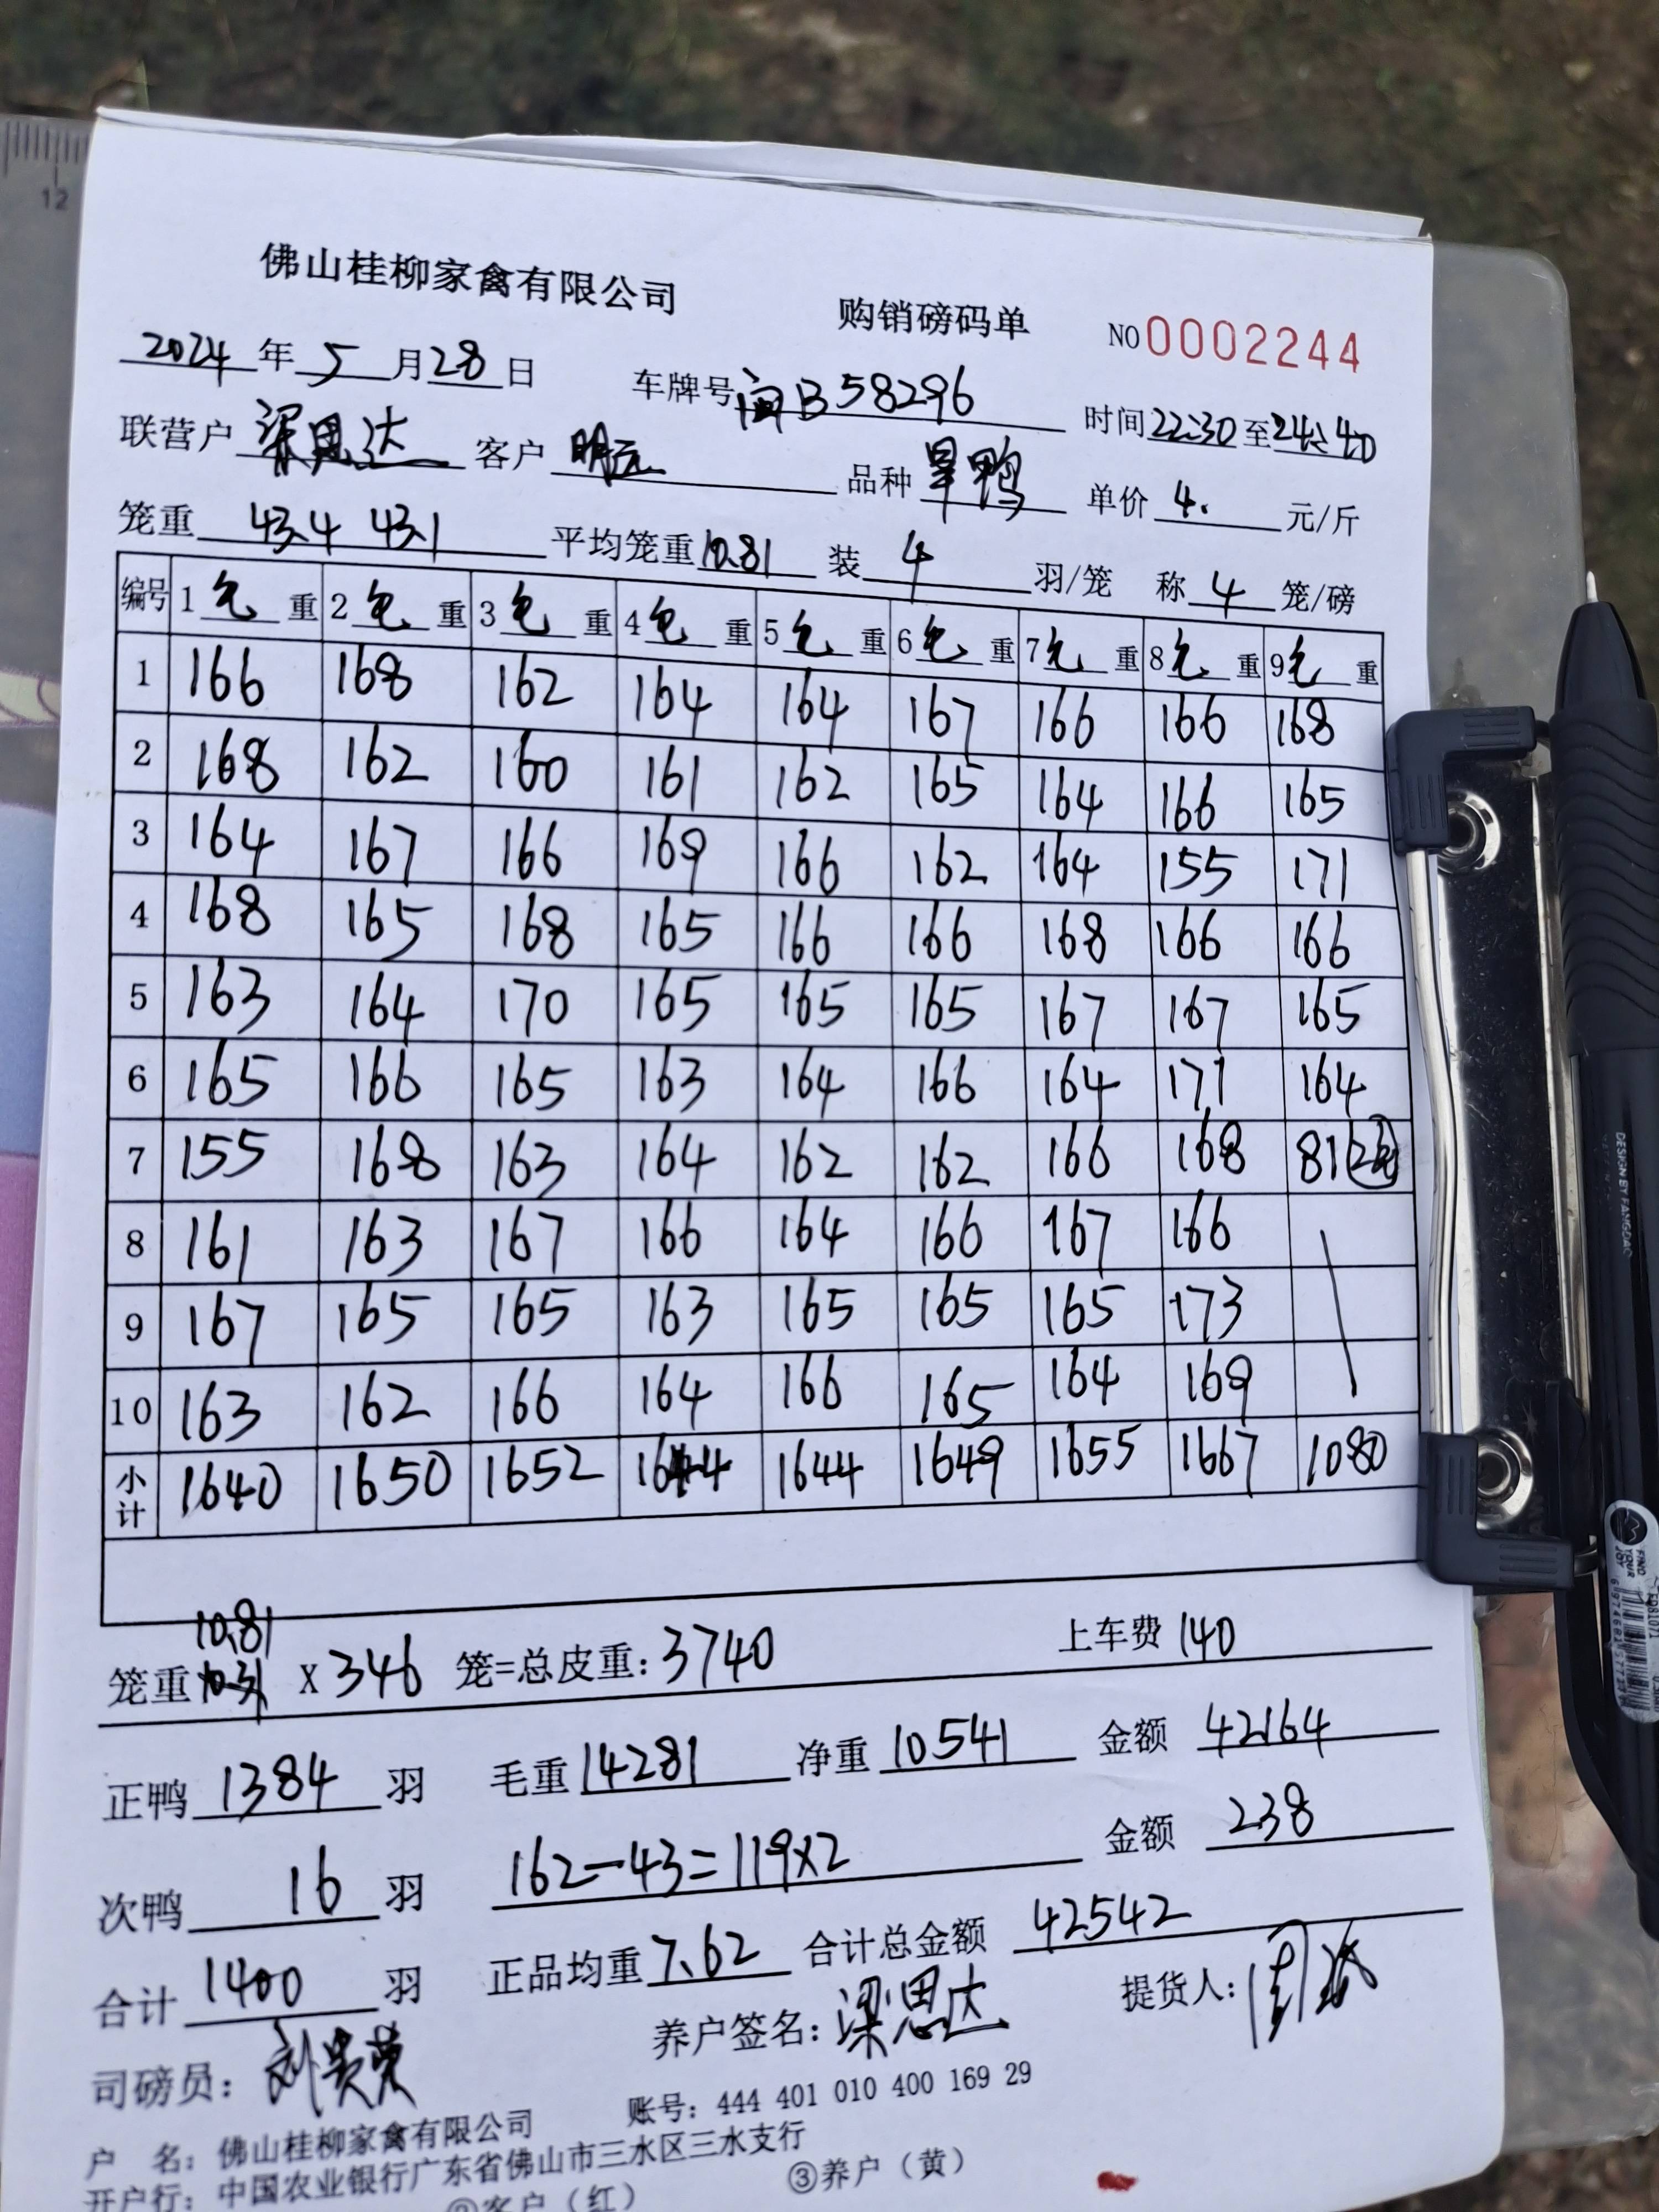 12
佛山桂柳家禽有限公司 购销磅码单 NO 0002244
2024 年 5 月 28 日 车牌号 闽B58296 时间 22:30 至 24:40
联营户 梁思达 客户 明元 品种 旱鸭 单价 4. 元/斤
笼重 43.4 43.1 平均笼重 10.81 装 4 羽/笼 称 4 笼/磅
编号 1 毛 重 2 毛 重 3 毛 重 4 毛 重 5 毛 重 6 毛 重 7 毛 重 8 毛 重 9 毛 重
1 166 168 162 164 164 167 166 166 168
2 168 162 160 161 162 165 164 166 165
3 164 167 166 169 166 162 164 155 171
4 168 165 168 165 166 166 168 166 166
5 163 164 170 165 165 165 167 167 165
6 165 166 165 163 164 166 164 171 164
7 155 168 163 164 162 162 166 168 81
8 161 163 167 166 164 166 167 166
9 167 165 165 163 165 165 165 173
10 163 162 166 164 166 165 164 169
小计 1640 1650 1652 1644 1644 1649 1655 1667 1080
笼重 10.81 x 346 笼=总皮重: 3740 上车费 140
正鸭 1384 羽 毛重 14281 净重 10541 金额 42164
次鸭 16 羽 162-43=119×2 金额 238
合计 1400 羽 正品均重 7.62 合计总金额 42542
司磅员: 养户签名: 梁思达 提货人:
户 名: 佛山桂柳家禽有限公司 账号: 444 401 010 400 169 29
开户行: 中国农业银行广东省佛山市三水区三水支行
②客户（红） ③养户（黄）
DESIGN BY FANGGAO
FIND YOUR JOY